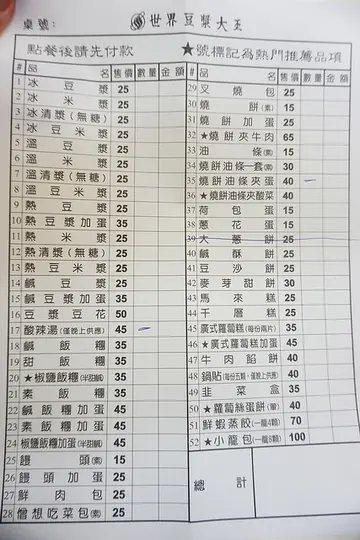 桌號:
世界豆漿大王
點餐後請先付款
★號標記為熱門推薦品項
# 品名 售價 數量 金額
1 冰豆漿 25
2 冰米漿 25
3 冰清漿(無糖) 25
4 冰豆米漿 25
5 溫豆漿 25
6 溫米漿 25
7 溫清漿(無糖) 25
8 溫豆米漿 25
9 熱豆漿 25
10 熱豆漿加蛋 35
11 熱米漿 25
12 熱清漿(無糖) 25
13 熱豆米漿 25
14 鹹豆漿 35
15 鹹豆漿加蛋 35
16 豆漿豆花 50
17 酸辣湯(僅晚上供應) 45
18 鹹飯糰 35
19 甜飯糰 35
20 ★椒鹽飯糰(半甜鹹) 35
21 素飯糰 35
22 鹹飯糰加蛋 45
23 素飯糰加蛋 45
24 椒鹽飯糰加蛋(半甜鹹) 45
25 饅頭(素) 15
26 饅頭加蛋 25
27 鮮肉包 25
28 僧想吃菜包(素) 25
# 品名 售價 數量 金額
29 叉燒包 25
30 燒餅(素) 15
31 燒餅加蛋 25
32 ★燒餅夾牛肉 65
33 油條(素) 15
34 燒餅油條一套(素) 30
35 燒餅油條夾蛋 40
36 ★燒餅油條夾酸菜 40
37 荷包蛋 15
38 蔥花蛋 15
39 大蔥餅 25
40 鹹酥餅 25
41 豆沙餅 25
42 麥芽甜餅 30
43 馬來糕 25
44 千層糕 25
45 廣式蘿蔔糕(每份兩片) 35
46 ★廣式蘿蔔糕加蛋 45
47 牛肉餡餅 40
48 鍋貼(每份五顆,僅晚上供應) 40
49 韭菜盒 35
50 ★蘿蔔絲蛋餅(葷) 40
51 鮮蝦蒸餃(一籠4顆) 70
52 ★小籠包(一籠8顆) 100
總計